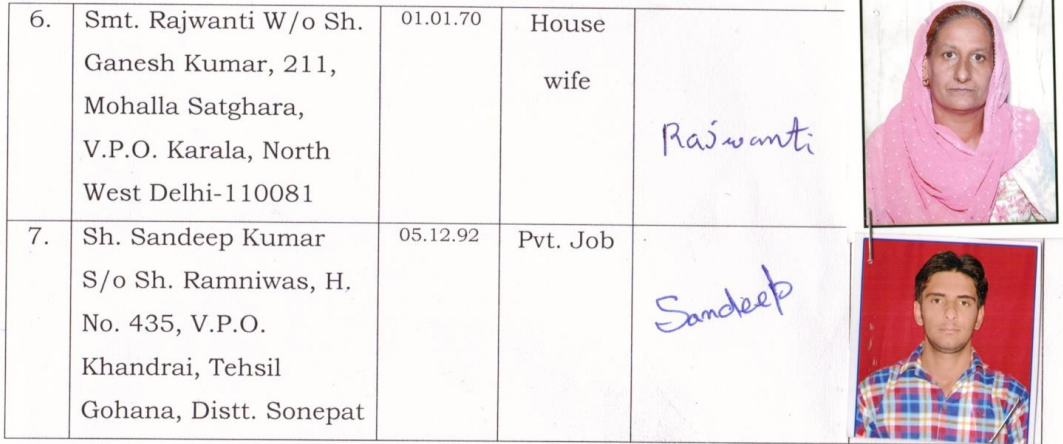 6.
Smt. Rajwanti W/o Sh.
Ganesh Kumar, 211,
Mohalla Satghara,
V.P.O. Karala, North
West Delhi-110081
01.01.70
House
wife
Rajwanti
7.
Sh. Sandeep Kumar
S/o Sh. Ramniwas, H.
No. 435, V.P.O.
Khandrai, Tehsil
Gohana, Distt. Sonepat
05.12.92
Pvt. Job
Sandeep